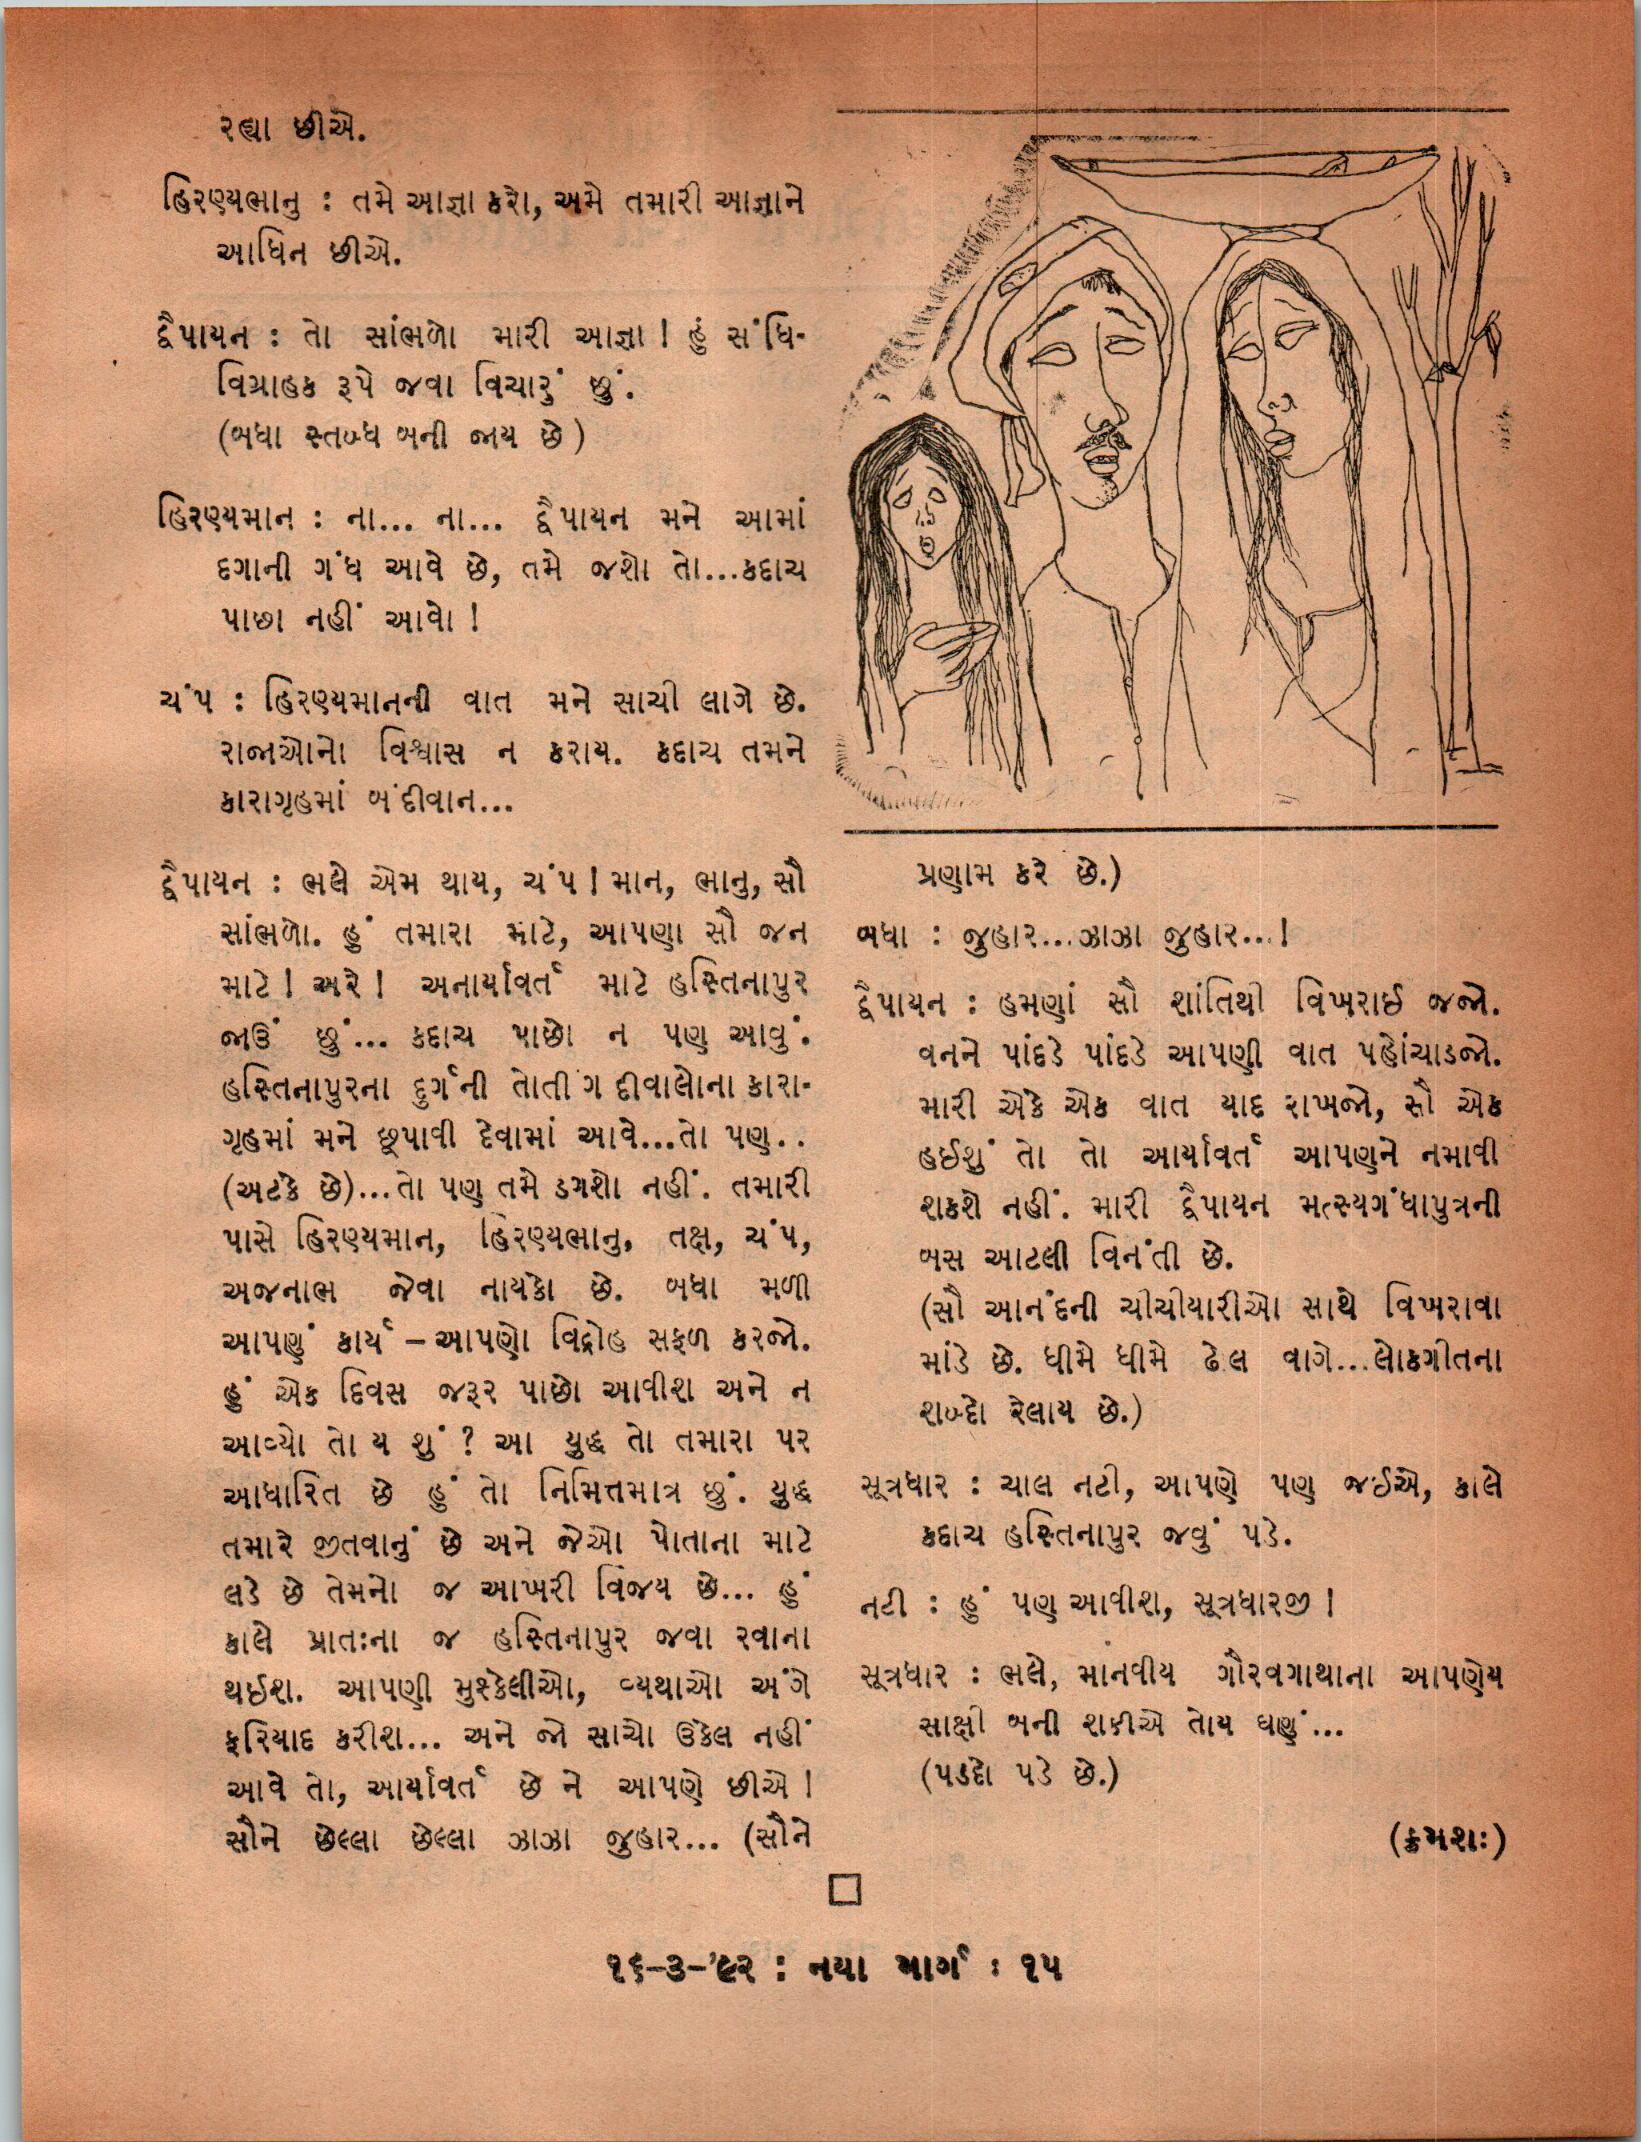 રહ્યા છીએ.
હિરણ્યભાનુ : તમે આજ્ઞા કરો, અમે તમારી આજ્ઞાને
આધિન છીએ.
દ્વૈપાયન : તો સાંભળો મારી આજ્ઞા ! હું સંધિ-
વિગ્રાહક રૂપે જવા વિચારું છું.
(બધા સ્તબ્ધ બની જાય છે)
હિરણ્યમાન : ના... ના... દ્વૈપાયન મને આમાં
દગાની ગંધ આવે છે, તમે જશો તો...કદાચ
પાછા નહીં આવો !
ચંપ : હિરણ્યમાનની વાત મને સાચી લાગે છે.
રાજાઓનો વિશ્વાસ ન કરાય. કદાચ તમને
કારાગૃહમાં બંદીવાન...
દ્વૈપાયન : ભલે એમ થાય, ચંપ ! માન, ભાનુ, સૌ
સાંભળો. હું તમારા માટે, આપણા સૌ જન
માટે ! અરે ! અનાર્યાવર્ત માટે હસ્તિનાપુર
જાઉં છું... કદાચ પાછો ન પણ આવું.
હસ્તિનાપુરના દુર્ગની તોતીંગ દીવાલોના કારા-
ગૃહમાં મને છૂપાવી દેવામાં આવે...તો પણ..
(અટકે છે)...તો પણ તમે ડગશો નહીં. તમારી
પાસે હિરણ્યમાન, હિરણ્યભાનુ, તક્ષ, ચંપ,
અજનાભ જેવા નાયકો છે. બધા મળી
આપણું કાર્ય – આપણો વિદ્રોહ સફળ કરજો.
હું એક દિવસ જરૂર પાછો આવીશ અને ન
આવ્યો તો ય શું ? આ યુદ્ધ તો તમારા પર
આધારિત છે હું તો નિમિત્તમાત્ર છું. યુદ્ધ
તમારે જીતવાનું છે અને જેઓ પોતાના માટે
લડે છે તેમનો જ આખરી વિજય છે... હું
કાલે પ્રાતઃના જ હસ્તિનાપુર જવા રવાના
થઈશ. આપણી મુશ્કેલીઓ, વ્યથાઓ અંગે
ફરિયાદ કરીશ... અને જો સાચો ઉકેલ નહીં
આવે તો, આર્યાવર્ત છે ને આપણે છીએ !
સૌને છેલ્લા છેલ્લા ઝાઝા જુહાર... (સૌને
પ્રણામ કરે છે.)
બધા : જુહાર...ઝાઝા જુહાર...!
દ્વૈપાયન : હમણાં સૌ શાંતિથી વિખરાઈ જજો.
વનને પાંદડે પાંદડે આપણી વાત પહોંચાડજો.
મારી એકે એક વાત યાદ રાખજો, સૌ એક
હઈશું તો તો આર્યાવર્ત આપણને નમાવી
શકશે નહીં. મારી દ્વૈપાયન મત્સ્યગંધાપુત્રની
બસ આટલી વિનંતી છે.
(સૌ આનંદની ચીચીયારીઓ સાથે વિખરાવા
માંડે છે. ધીમે ધીમે ઢેલ વાગે...લોકગીતના
શબ્દો રેલાય છે.)
સૂત્રધાર : ચાલ નટી, આપણે પણ જઈએ, કાલે
કદાચ હસ્તિનાપુર જવું પડે.
નટી : હું પણ આવીશ, સૂત્રધારજી !
સૂત્રધાર : ભલે, માનવીય ગૌરવગાથાના આપણેય
સાક્ષી બની શકીએ તોય ઘણું...
(પડદો પડે છે.)
(ક્રમશઃ)
૧૬-૩-'૯૨ : નયા માર્ગ : ૧૫